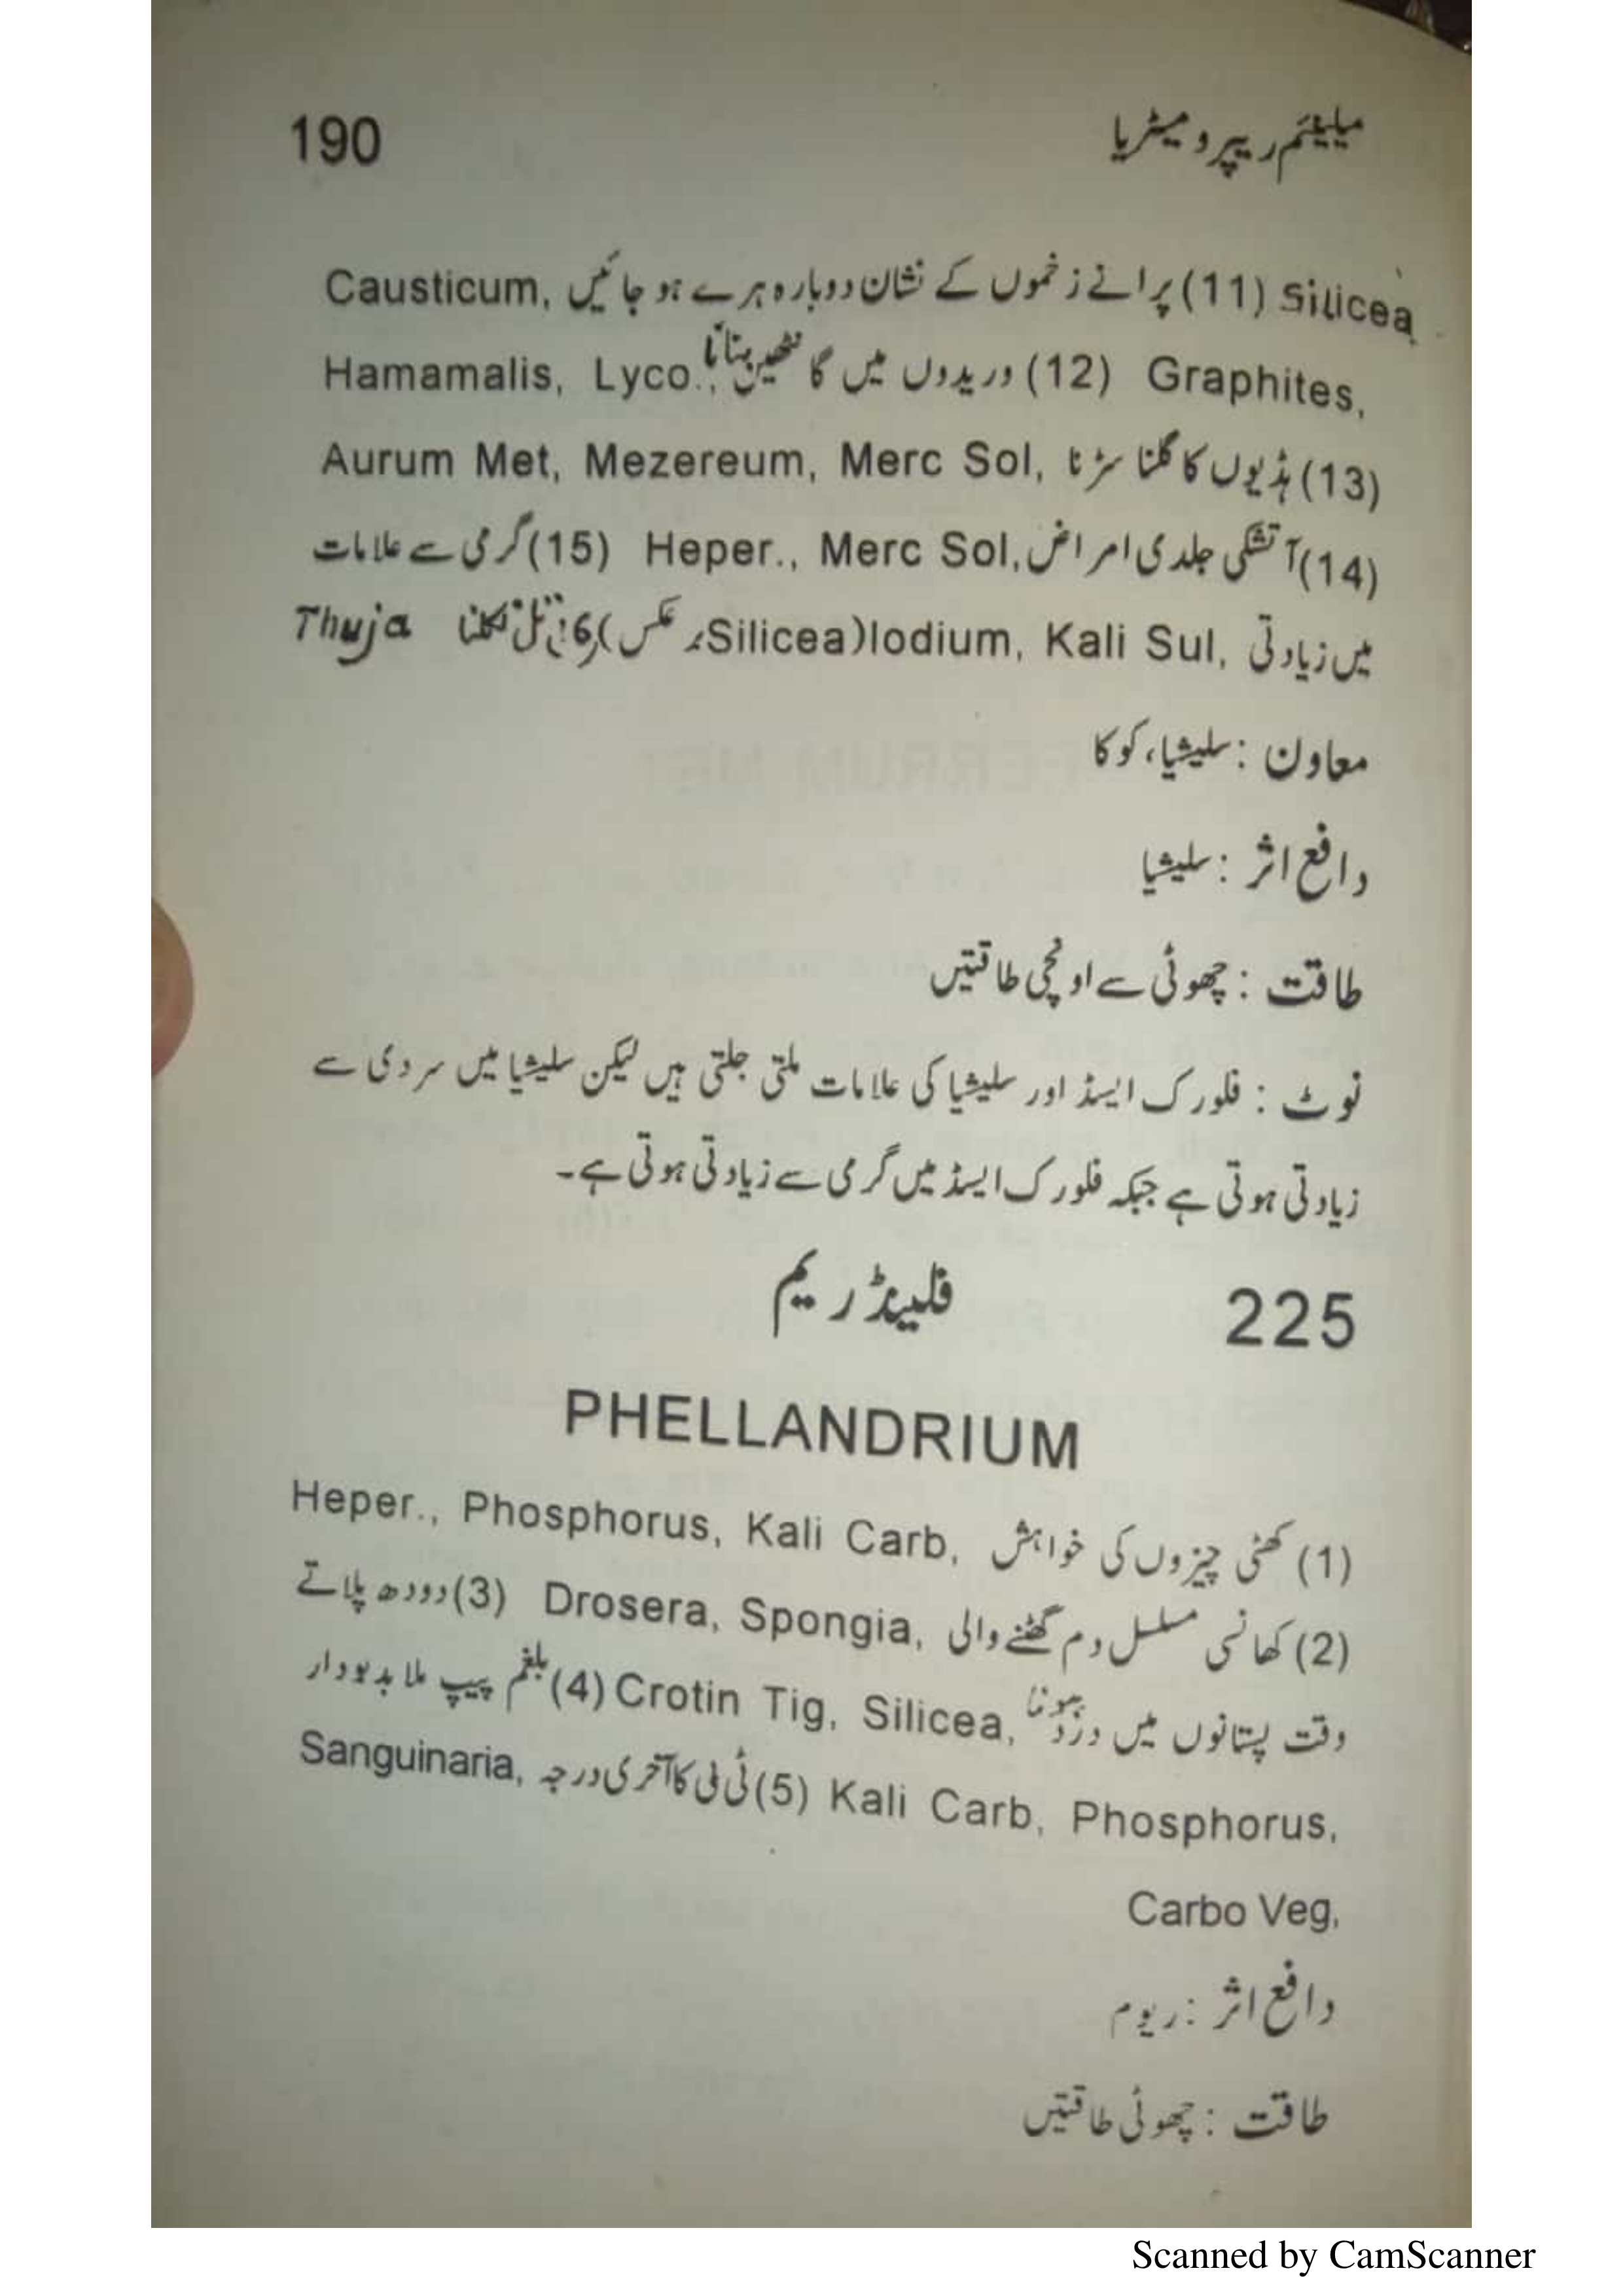 190 میلینئم ریپرو میٹریا
Silicea (11) پرانے زخموں کے نشان دوبارہ ہرے ہو جائیں Causticum,
Graphites, (12) وریدوں میں گانٹھیں بننا Hamamalis, Lyco.,
(13) ہڈیوں کا گلنا سڑنا Aurum Met, Mezereum, Merc Sol,
(14) آتشکی جلدی امراض Heper., Merc Sol, (15) گرمی سے علامات
میں زیادتی Iodium, Kali Sul, (Silicea برعکس) تل نکلنا Thuja
معاون : سلیشیا، کوکا
دافع اثر : سلیشیا
طاقت : چھوٹی سے اونچی طاقتیں
نوٹ : فلورک ایسڈ اور سلیشیا کی علامات ملتی جلتی ہیں لیکن سلیشیا میں سردی سے
زیادتی ہوتی ہے جبکہ فلورک ایسڈ میں گرمی سے زیادتی ہوتی ہے۔
225 فلینڈریم
PHELLANDRIUM
(1) کھٹی چیزوں کی خواہش Heper., Phosphorus, Kali Carb,
(2) کھانسی مسلسل دم گھٹنے والی Drosera, Spongia, (3) دودھ پلاتے
وقت پستانوں میں درد ہونا Crotin Tig, Silicea, (4) بلغم پیپ ملا بدبودار
Kali Carb, Phosphorus, (5) ٹی بی کا آخری درجہ Sanguinaria,
Carbo Veg,
دافع اثر : ریوم
طاقت : چھوٹی طاقتیں
Scanned by CamScanner